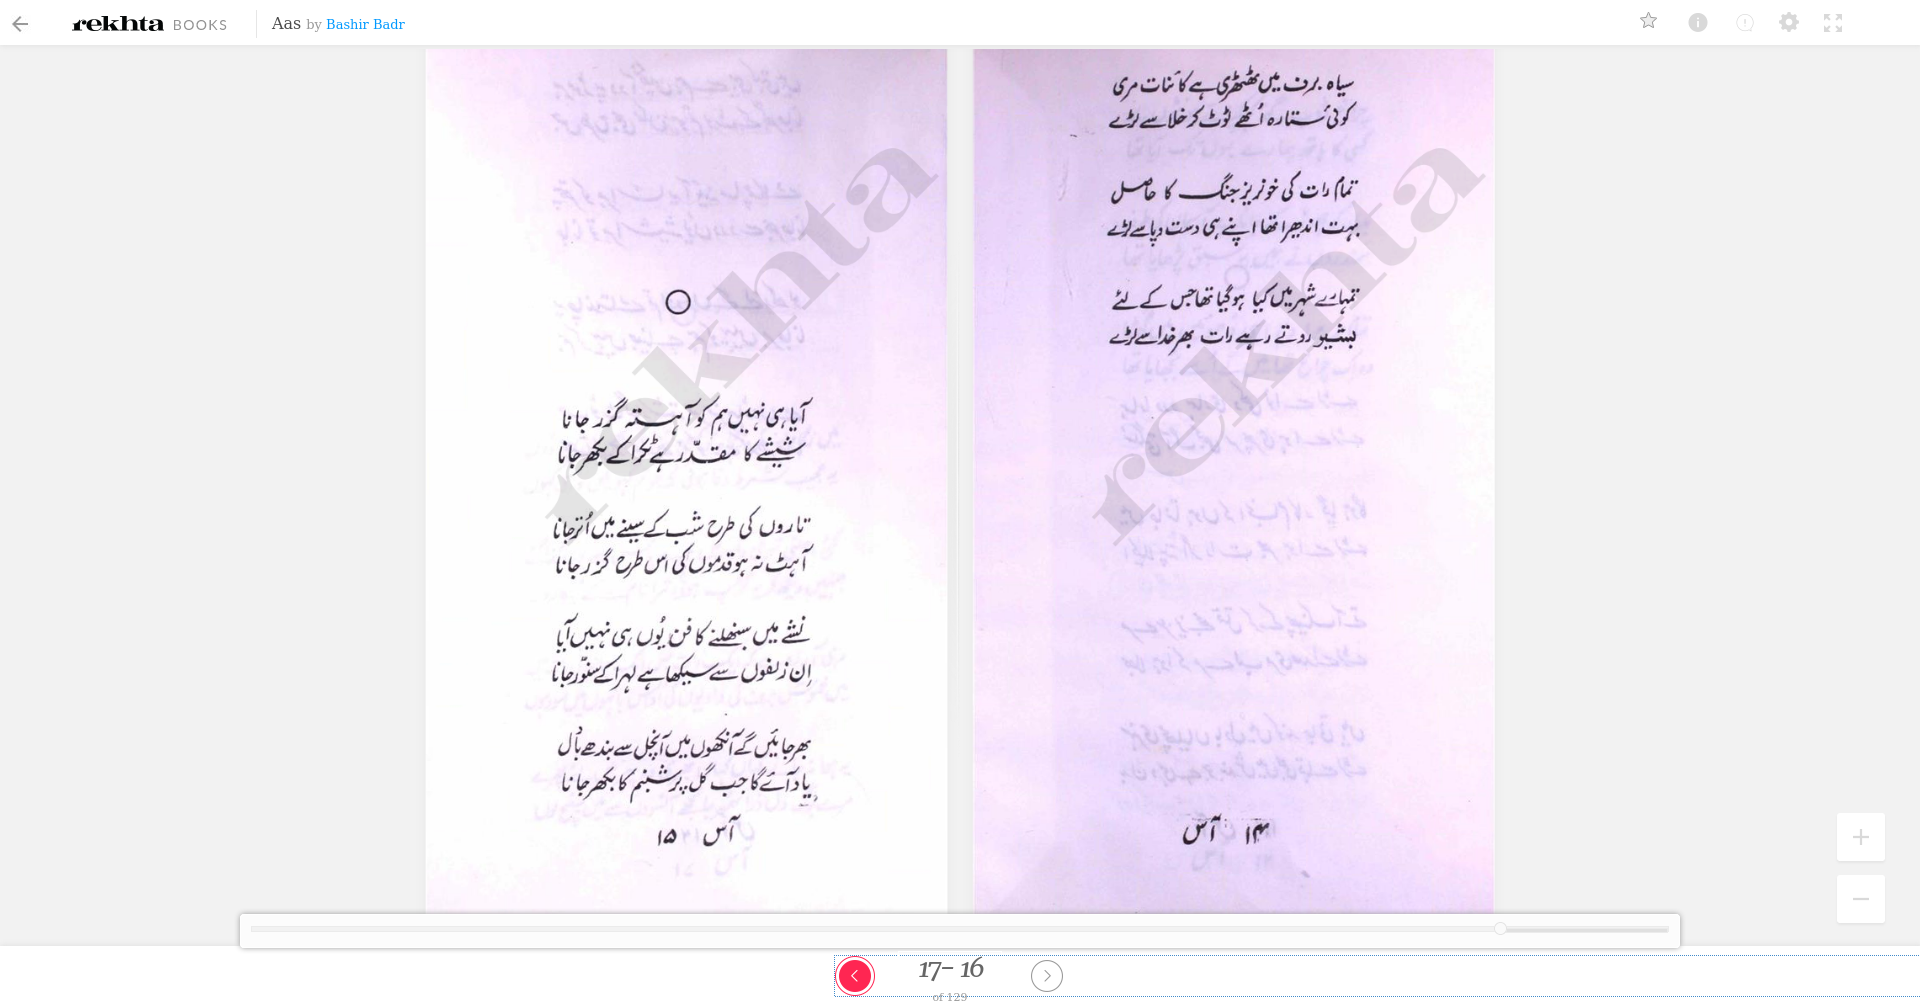 rekhta BOOKS Aas by Bashir Badr
سیاہ برف میں ٹھٹھری ہے کائنات مری
کوئی ستارہ اُٹھے ٹوٹ کر خلا سے لڑے
تمام رات کی خونریز جنگ کا حاصل
بہت اندھیرا تھا اپنے ہی دست و پا سے لڑے
تمہارے شہر میں کیا ہو گیا تھا جس کے لئے
روتے رہے رات بھر خدا سے لڑے
۱۴ آس
rekhta
آیا ہی نہیں ہم کو آہستہ گزر جانا
شیشے کا مقدّر ہے ٹکرا کے بکھر جانا
تاروں کی طرح شب کے سینے میں اُتر جانا
آہٹ نہ ہو قدموں کی اس طرح گزر جانا
نشے میں سنبھلنے کا فن یُوں ہی نہیں آیا
اِن زلفوں سے سیکھا ہے لہرا کے سنوَر جانا
بھر جائیں گے آنکھوں میں آنچل سے بندھے بادل
یاد آئے گا جب گل پر شبنم کا بکھر جانا
آس ۱۵
rekhta
17– 16
of 129